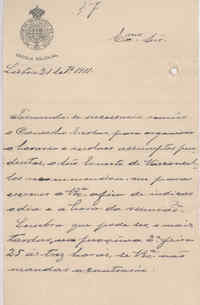 57
Exmo Sr.
ESCOLA COLONIAL
Lisboa 21 de 7º 1911
Tornando-se necessario reunir
o Conselho Escolar para organisar
o horario e resolver assumptos pen-
dentes, o Sr. Ernesto de Vasconcel-
los recommendou-me para
escrever a V. Exª afim de indicar
o dia e a hora da reunião.
Lembro que pode ser, o mais
tardar, na proxima 2ª feira
25 ás trez horas, se V. Exª não
mandar o contrario.